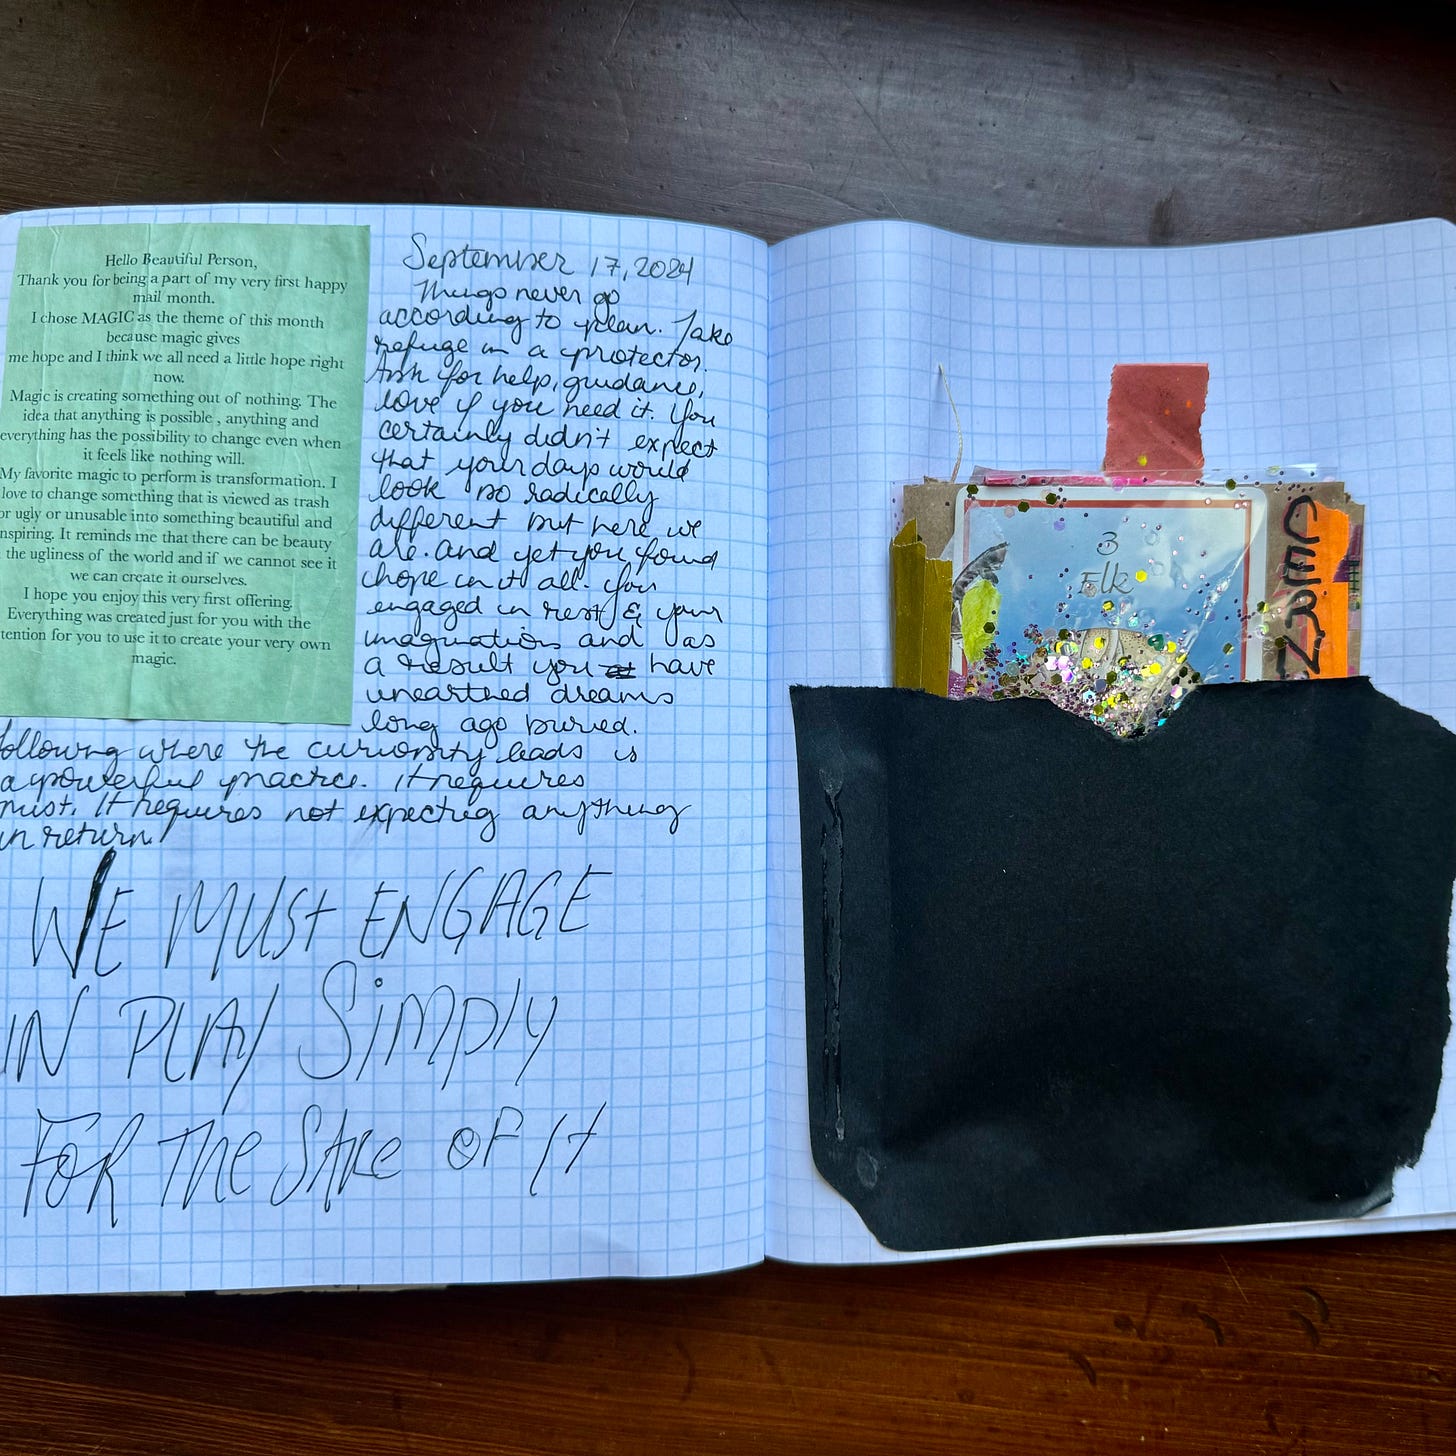 Hello Beautiful Person,
Thank you for being a part of my very first happy
mail month.
I chose MAGIC as the theme of this month
because magic gives
me hope and I think we all need a little hope right
now.
Magic is creating something out of nothing. The
idea that anything is possible , anything and
everything has the possibility to change even when
it feels like nothing will.
My favorite magic to perform is transformation. I
love to change something that is viewed as trash
or ugly or unusable into something beautiful and
nspiring. It reminds me that there can be beauty
the ugliness of the world and if we cannot see it
we can create it ourselves.
I hope you enjoy this very first offering.
Everything was created just for you with the
tention for you to use it to create your very own
magic.
September 17, 2024
Things never go
according to plan. Take
refuge in a protector.
Ask for help, guidance,
love if you need it. You
certainly didn't expect
that your days would
look so radically
different but here we
are. and yet you found
hope in it all. You
engaged in rest & your
imagination and as
a result you have
unearthed dreams
long ago buried.
following where the curiosity leads is
a powerful practice. it requires
trust. It requires not expecting anything
in return.
WE MUST ENGAGE
IN PLAY SIMPLY
FOR THE SAKE OF IT
3
Elk